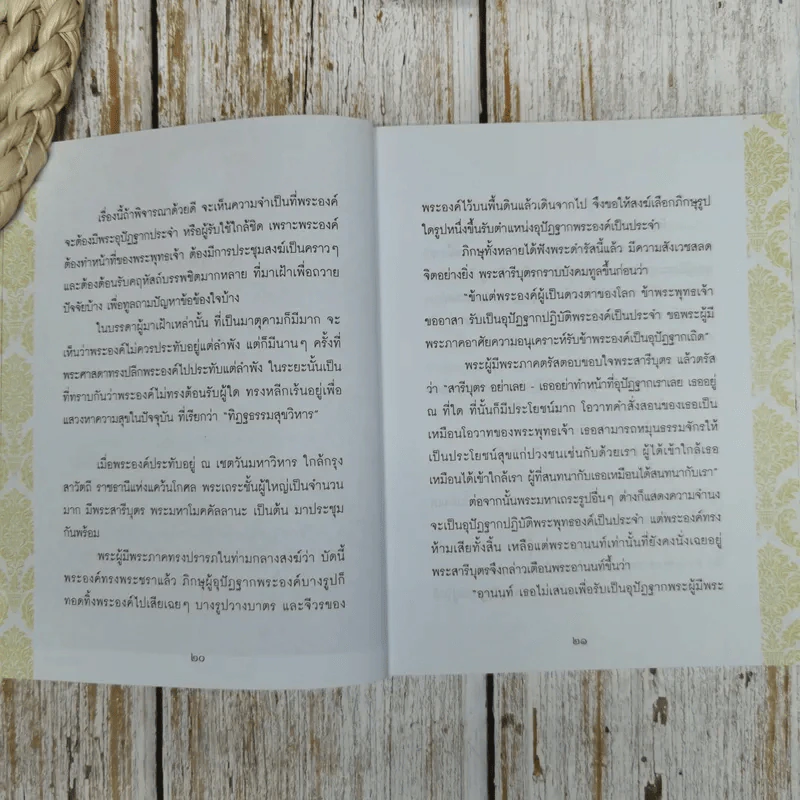 เรื่องนี้ถ้าพิจารณาด้วยดี จะเห็นความจำเป็นที่พระองค์
จะต้องมีพระอุปัฏฐากประจำ หรือผู้รับใช้ใกล้ชิด เพราะพระองค์
ต้องทำหน้าที่ของพระพุทธเจ้า ต้องมีการประชุมสงฆ์เป็นคราวๆ
และต้องต้อนรับคฤหัสถ์บรรพชิตมากหลาย ที่มาเฝ้าเพื่อถวาย
ปัจจัยบ้าง เพื่อทูลถามปัญหาข้อข้องใจบ้าง
ในบรรดาผู้มาเฝ้าเหล่านั้น ที่เป็นมาตุคามก็มีมาก จะ
เห็นว่าพระองค์ไม่ควรประทับอยู่แต่ลำพัง แต่ก็มีนานๆ ครั้งที่
พระศาสดาทรงปลีกพระองค์ไปประทับแต่ลำพัง ในระยะนั้นเป็น
ที่ทราบกันว่าพระองค์ไม่ทรงต้อนรับผู้ใด ทรงหลีกเร้นอยู่เพื่อ
แสวงหาความสุขในปัจจุบัน ที่เรียกว่า "ทิฏฐธรรมสุขวิหาร"
เมื่อพระองค์ประทับอยู่ ณ เชตวันมหาวิหาร ใกล้กรุง
สาวัตถี ราชธานีแห่งแคว้นโกศล พระเถระชั้นผู้ใหญ่เป็นจำนวน
มาก มีพระสารีบุตร พระมหาโมคคัลลานะ เป็นต้น มาประชุม
กันพร้อม
พระผู้มีพระภาคทรงปรารภในท่ามกลางสงฆ์ว่า บัดนี้
พระองค์ทรงพระชราแล้ว ภิกษุผู้อุปัฏฐากพระองค์บางรูปก็
ทอดทิ้งพระองค์ไปเสียเฉยๆ บางรูปวางบาตร และจีวรของ
๒๐
พระองค์ไว้บนพื้นดินแล้วเดินจากไป จึงขอให้สงฆ์เลือกภิกษุรูป
ใดรูปหนึ่งขึ้นรับตำแหน่งอุปัฏฐากพระองค์เป็นประจำ
ภิกษุทั้งหลายได้ฟังพระดำรัสนี้แล้ว มีความสังเวชสลด
จิตอย่างยิ่ง พระสารีบุตรกราบบังคมทูลขึ้นก่อนว่า
"ข้าแต่พระองค์ผู้เป็นดวงตาของโลก ข้าพระพุทธเจ้า
ขออาสา รับเป็นอุปัฏฐากปฏิบัติพระองค์เป็นประจำ ขอพระผู้มี
พระภาคอาศัยความอนุเคราะห์รับข้าพระองค์เป็นอุปัฏฐากเถิด"
พระผู้มีพระภาคตรัสตอบขอบใจพระสารีบุตร แล้วตรัส
ว่า "สารีบุตร อย่าเลย - เธออย่าทำหน้าที่อุปัฏฐากเราเลย เธออยู่
ณ ที่ใด ที่นั้นก็มีประโยชน์มาก โอวาทคำสั่งสอนของเธอเป็น
เหมือนโอวาทของพระพุทธเจ้า เธอสามารถหมุนธรรมจักรให้
เป็นประโยชน์สุขแก่ปวงชนเช่นกับด้วยเรา ผู้ได้เข้าใกล้เธอ
เหมือนได้เข้าใกล้เรา ผู้ที่สนทนากับเธอเหมือนได้สนทนากับเรา"
ต่อจากนั้นพระมหาเถระรูปอื่นๆ ต่างก็แสดงความจำนง
จะเป็นอุปัฏฐากปฏิบัติพระพุทธองค์เป็นประจำ แต่พระองค์ทรง
ห้ามเสียทั้งสิ้น เหลือแต่พระอานนท์เท่านั้นที่ยังคงนั่งเฉยอยู่
พระสารีบุตรจึงกล่าวเตือนพระอานนท์ขึ้นว่า
"อานนท์ เธอไม่เสนอเพื่อรับเป็นอุปัฏฐากพระผู้มีพระ
๒๑